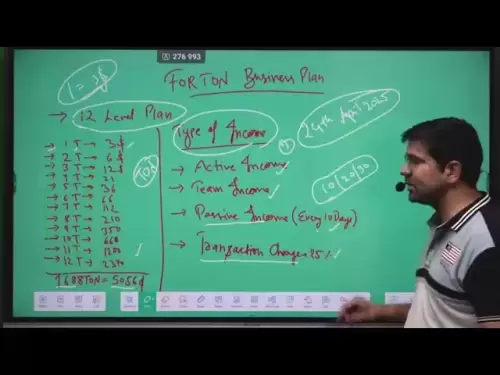 276 993
FORTON Business Plan
1 = 3$
→ 12 Level Plan
Type of Income
24th Sept 2025
→ 1 T → 3$
→ 2 T → 6$
→ 3 T → 12$
→ 5 T → 36
→ 6 T → 66
→ 7 T → 112
→ 8 T → 210
→ 9 T → 350
→ 10 T → 660
→ 11 T → 1200
→ 12 T →
→ Active Income
→ Team Income
10/20/30
→ Passive Income (Every 10 Days)
→ Transaction Charge 25%
1688 TON = 5056$